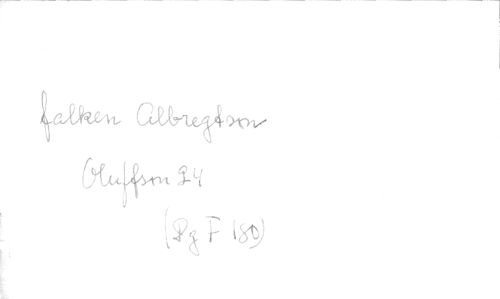 falken Albregtson
Oluffson 24
(Pg F 180)